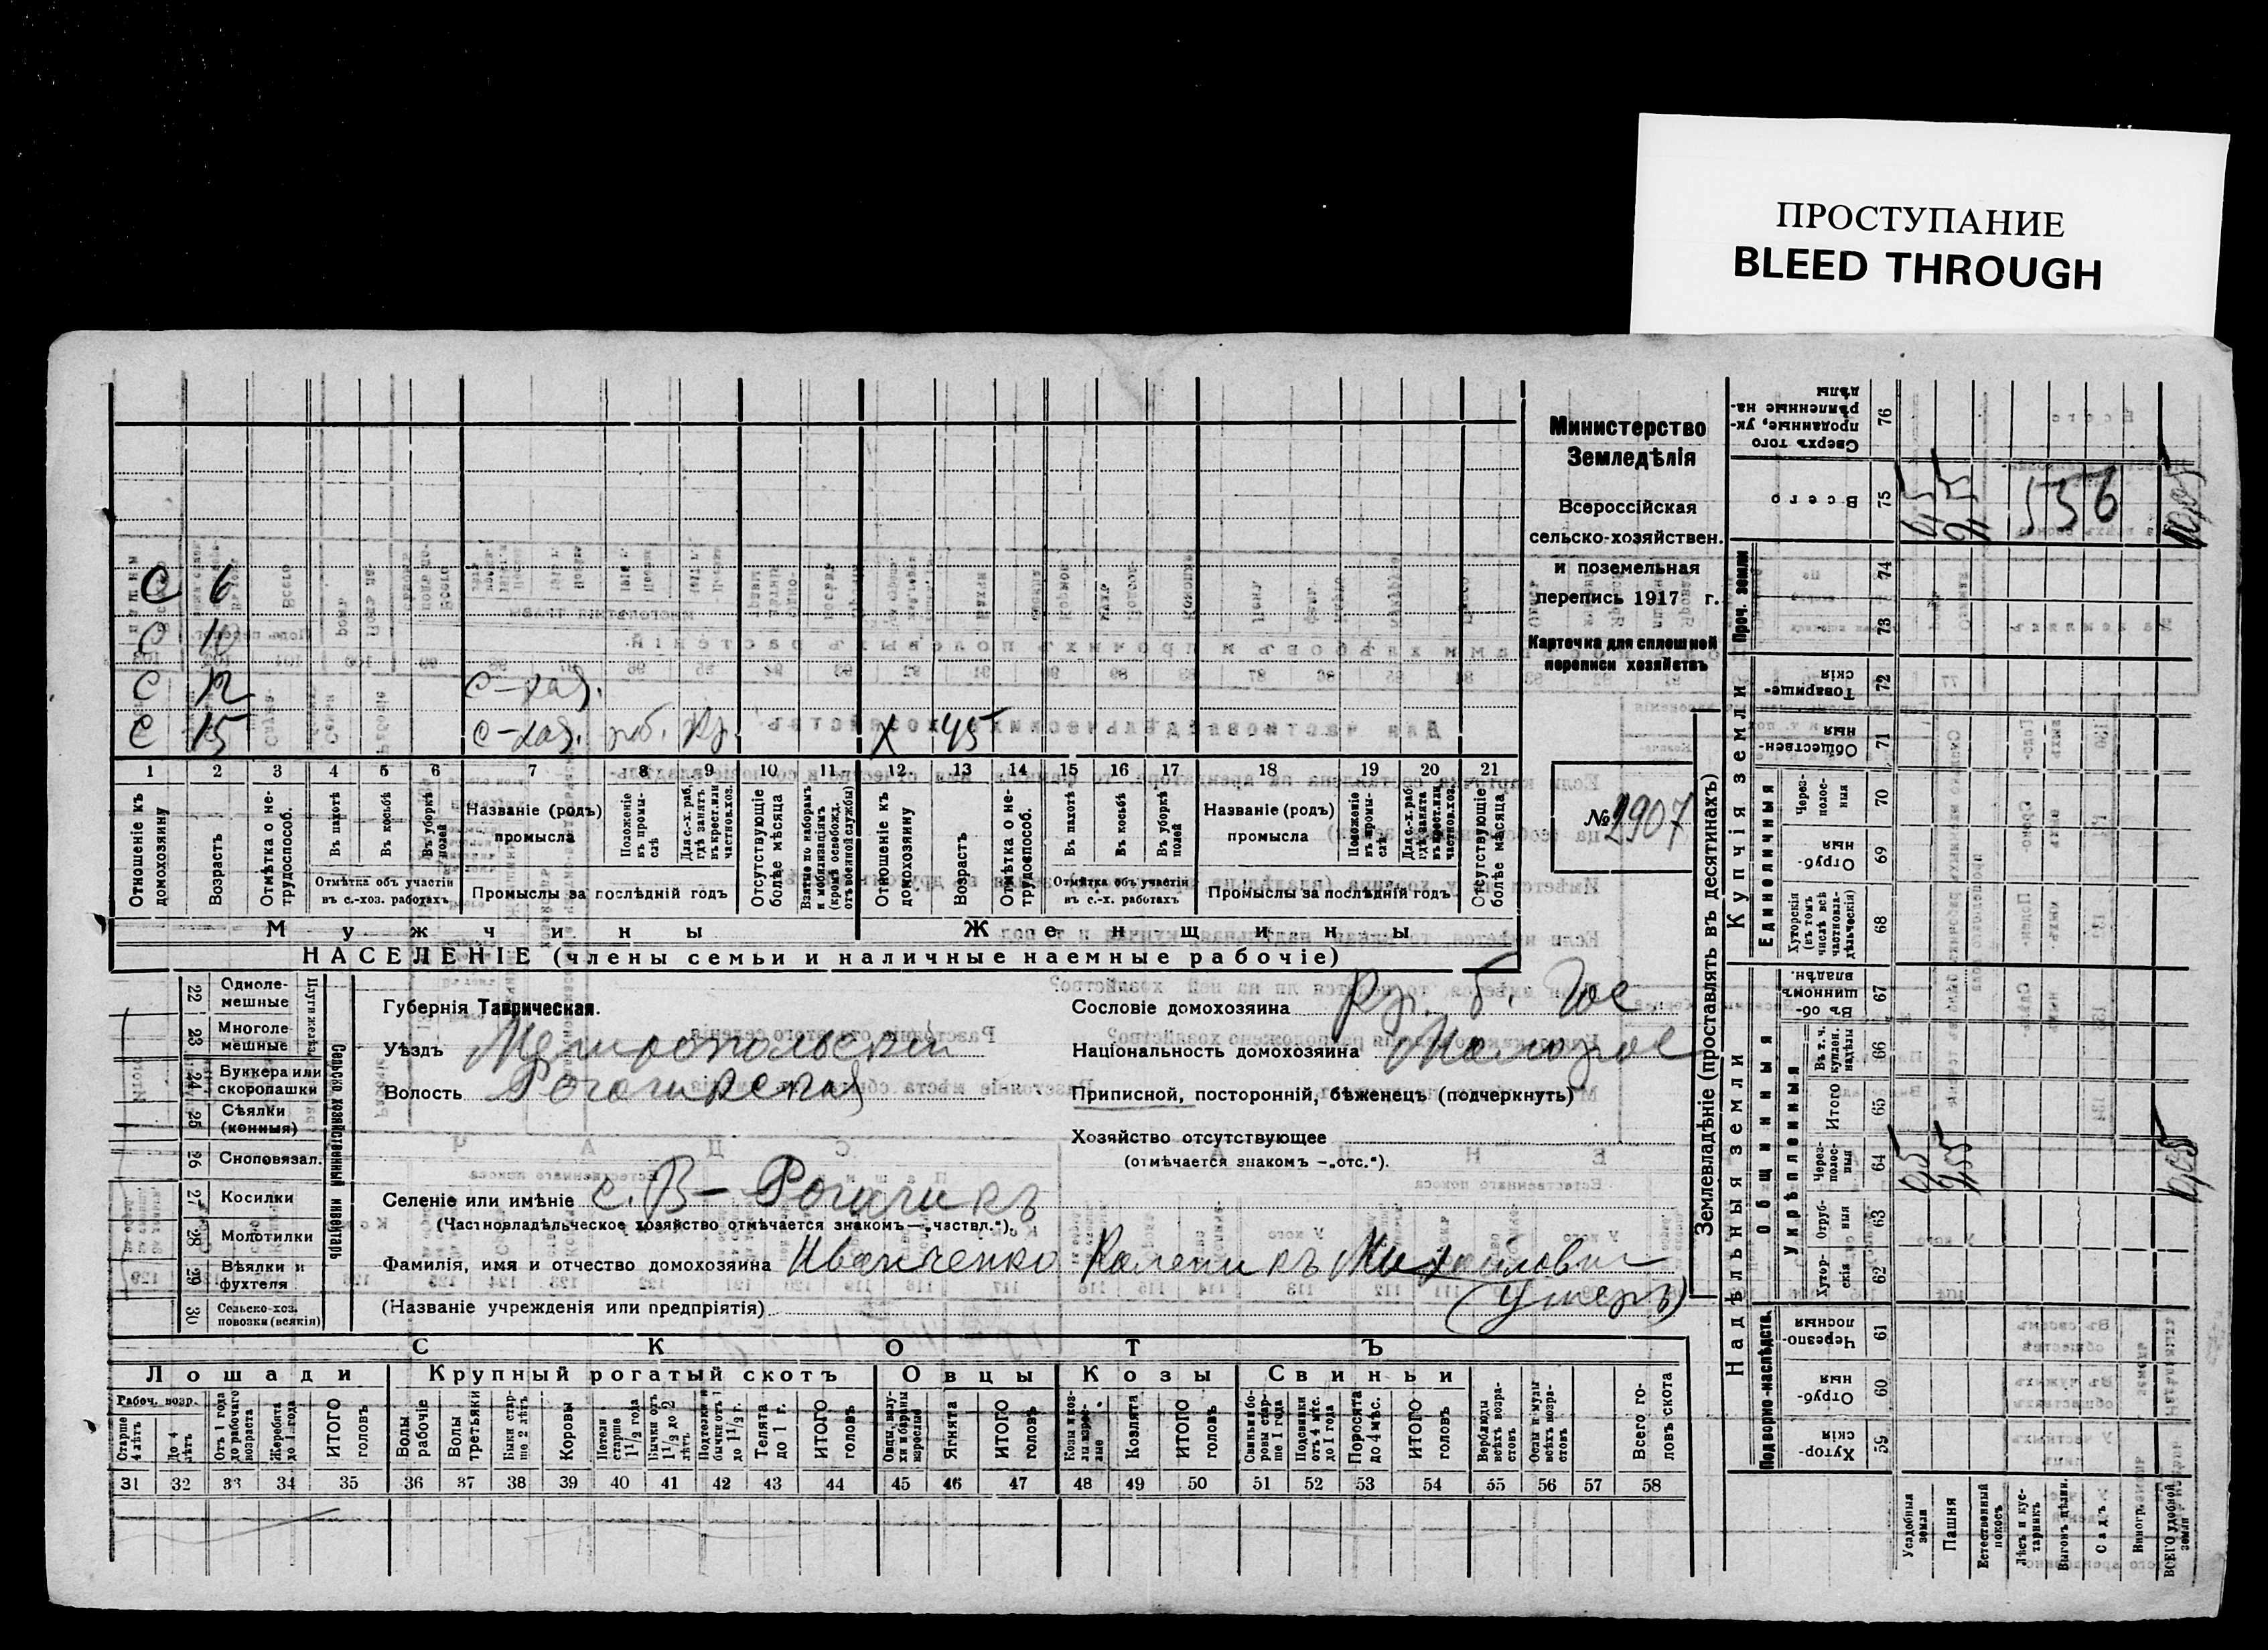 ПРОСТУПАНИЕ
BLEED THROUGH
Министерство
Земледѣлія
Всероссійская
сельско-хозяйствен.
и поземельная
перепись 1917 г.
Карточка для сплошной
переписи хозяйствъ
№ 2907
С 6
С 10
С 12 с-хоз.
С 15 с-хоз. Х 45
1 2 3 4 5 6 7 8 9 10 11 12 13 14 15 16 17 18 19 20 21
Отношеніе къ домохозяину
Возрастъ
Отмѣтка о не-трудоспособ.
Въ пахотѣ
Въ косьбѣ
Въ уборкѣ полей
Отмѣтка объ участіи въ с.-хоз. работахъ
Названіе (родъ) промысла
Положеніе въ промы-слѣ
Для с.-х. раб. гдѣ занятъ въ крест. или частнов. хоз.
Промыслы за послѣдній годъ
Отсутствующіе болѣе мѣсяца
Взятые по наборамъ и мобилизаціямъ (кромѣ освобожд. отъ военной службы)
Отношеніе къ домохозяину
Возрастъ
Отмѣтка о не-трудоспособ.
Въ пахотѣ
Въ косьбѣ
Въ уборкѣ полей
Отмѣтка объ участіи въ с.-х. работахъ
Названіе (родъ) промысла
Положеніе въ промы-слѣ
Для с.-х. раб. гдѣ занята въ крест. или частнов. хоз.
Промыслы за послѣдній годъ
Отсутствующіе болѣе мѣсяца
Мужчины Женщины
НАСЕЛЕНІЕ (члены семьи и наличные наемные рабочіе)
22 Одноле-мешные
23 Многоле-мешные
24 Буккера или скоропашки
25 Сѣялки (конныя)
26 Сноповязал.
27 Косилки
28 Молотилки
29 Вѣялки и фухтеля
30 Сельско-хоз. повозки (всякія)
Плуги желѣз.
Сельско-хозяйственный инвентарь
Губернія Таврическая.
Уѣздъ Мелитопольскій
Волость Рогачикская
Селеніе или имѣніе с. В-Рогачикъ
(Частновладѣльческое хозяйство отмѣчается знакомъ—„частвл.“).
Фамилія, имя и отчество домохозяина Иванченко Калени къ Михайлович
(умеръ)
(Названіе учрежденія или предпріятія)
Сословіе домохозяина Кр. б. Гос
Національность домохозяина Малорос
Приписной, посторонній, бѣженецъ (подчеркнуть)
Хозяйство отсутствующее
(отмѣчается знакомъ —„отс.“).
СКОТЪ
Лошади Крупный рогатый скотъ Овцы Козы Свиньи
Рабоч. возр.
Старше 4 лѣтъ
До 4 лѣтъ
Отъ 1 года до рабочаго возраста
Жеребята до 1 года
ИТОГО головъ
Волы рабочіе
Волы третьяки
Быки стар-ше 2 лѣтъ
Коровы
Нетели старше 1 1/2 года
Бычки отъ 1 1/2 до 2 лѣтъ
Подтелки и бычки отъ 1 до 1 1/2 г.
Телята до 1 г.
ИТОГО головъ
Овцы, валу-хи и бараны взрослые
Ягнята
ИТОГО головъ
Козы и коз-лы взрос-лые
Козлята
ИТОГО головъ
Свиньи и бо-ровы стар-ше 1 года
Подсвинки отъ 4 мѣс. до 1 года
Поросята до 4 мѣс.
ИТОГО головъ
Верблюды всѣхъ возра-стовъ
Ослы и мулы всѣхъ возра-стовъ
Всего го-ловъ скота
31 32 33 34 35 36 37 38 39 40 41 42 43 44 45 46 47 48 49 50 51 52 53 54 55 56 57 58
Землевладѣніе (проставлять въ десятинахъ)
Сверхъ того проданные, ук-рѣпленные на-дѣлы 76
Всего 75
Проч. земли 74 73
Купчія земли
Товарище-скія 72
Обществен-ныя 71
Единоличныя
Через-полос-ныя 70
Отруб-ныя 69
Хуторскія (въ томъ числѣ всѣ частновла-дѣльческія) 68
Надѣльныя земли
Общинныя
Въ об-щинномъ владѣн. 67
Укрѣпленныя
Въ т. ч. куплен. надѣлы 66
Итого 65
Через-полос-ныя 64
Отруб-ныя 63
Хутор-скія 62
Подворно-наслѣдств.
Черезпо-лосныя 61
Отруб-ныя 60
Хутор-скія 59
Усадебная земля
Пашня
Естественный покосъ
Лѣсъ и кус-тарникъ
Выгонъ цѣлин.
Садъ
Виногр.
ВСЕГО удобной земли
156